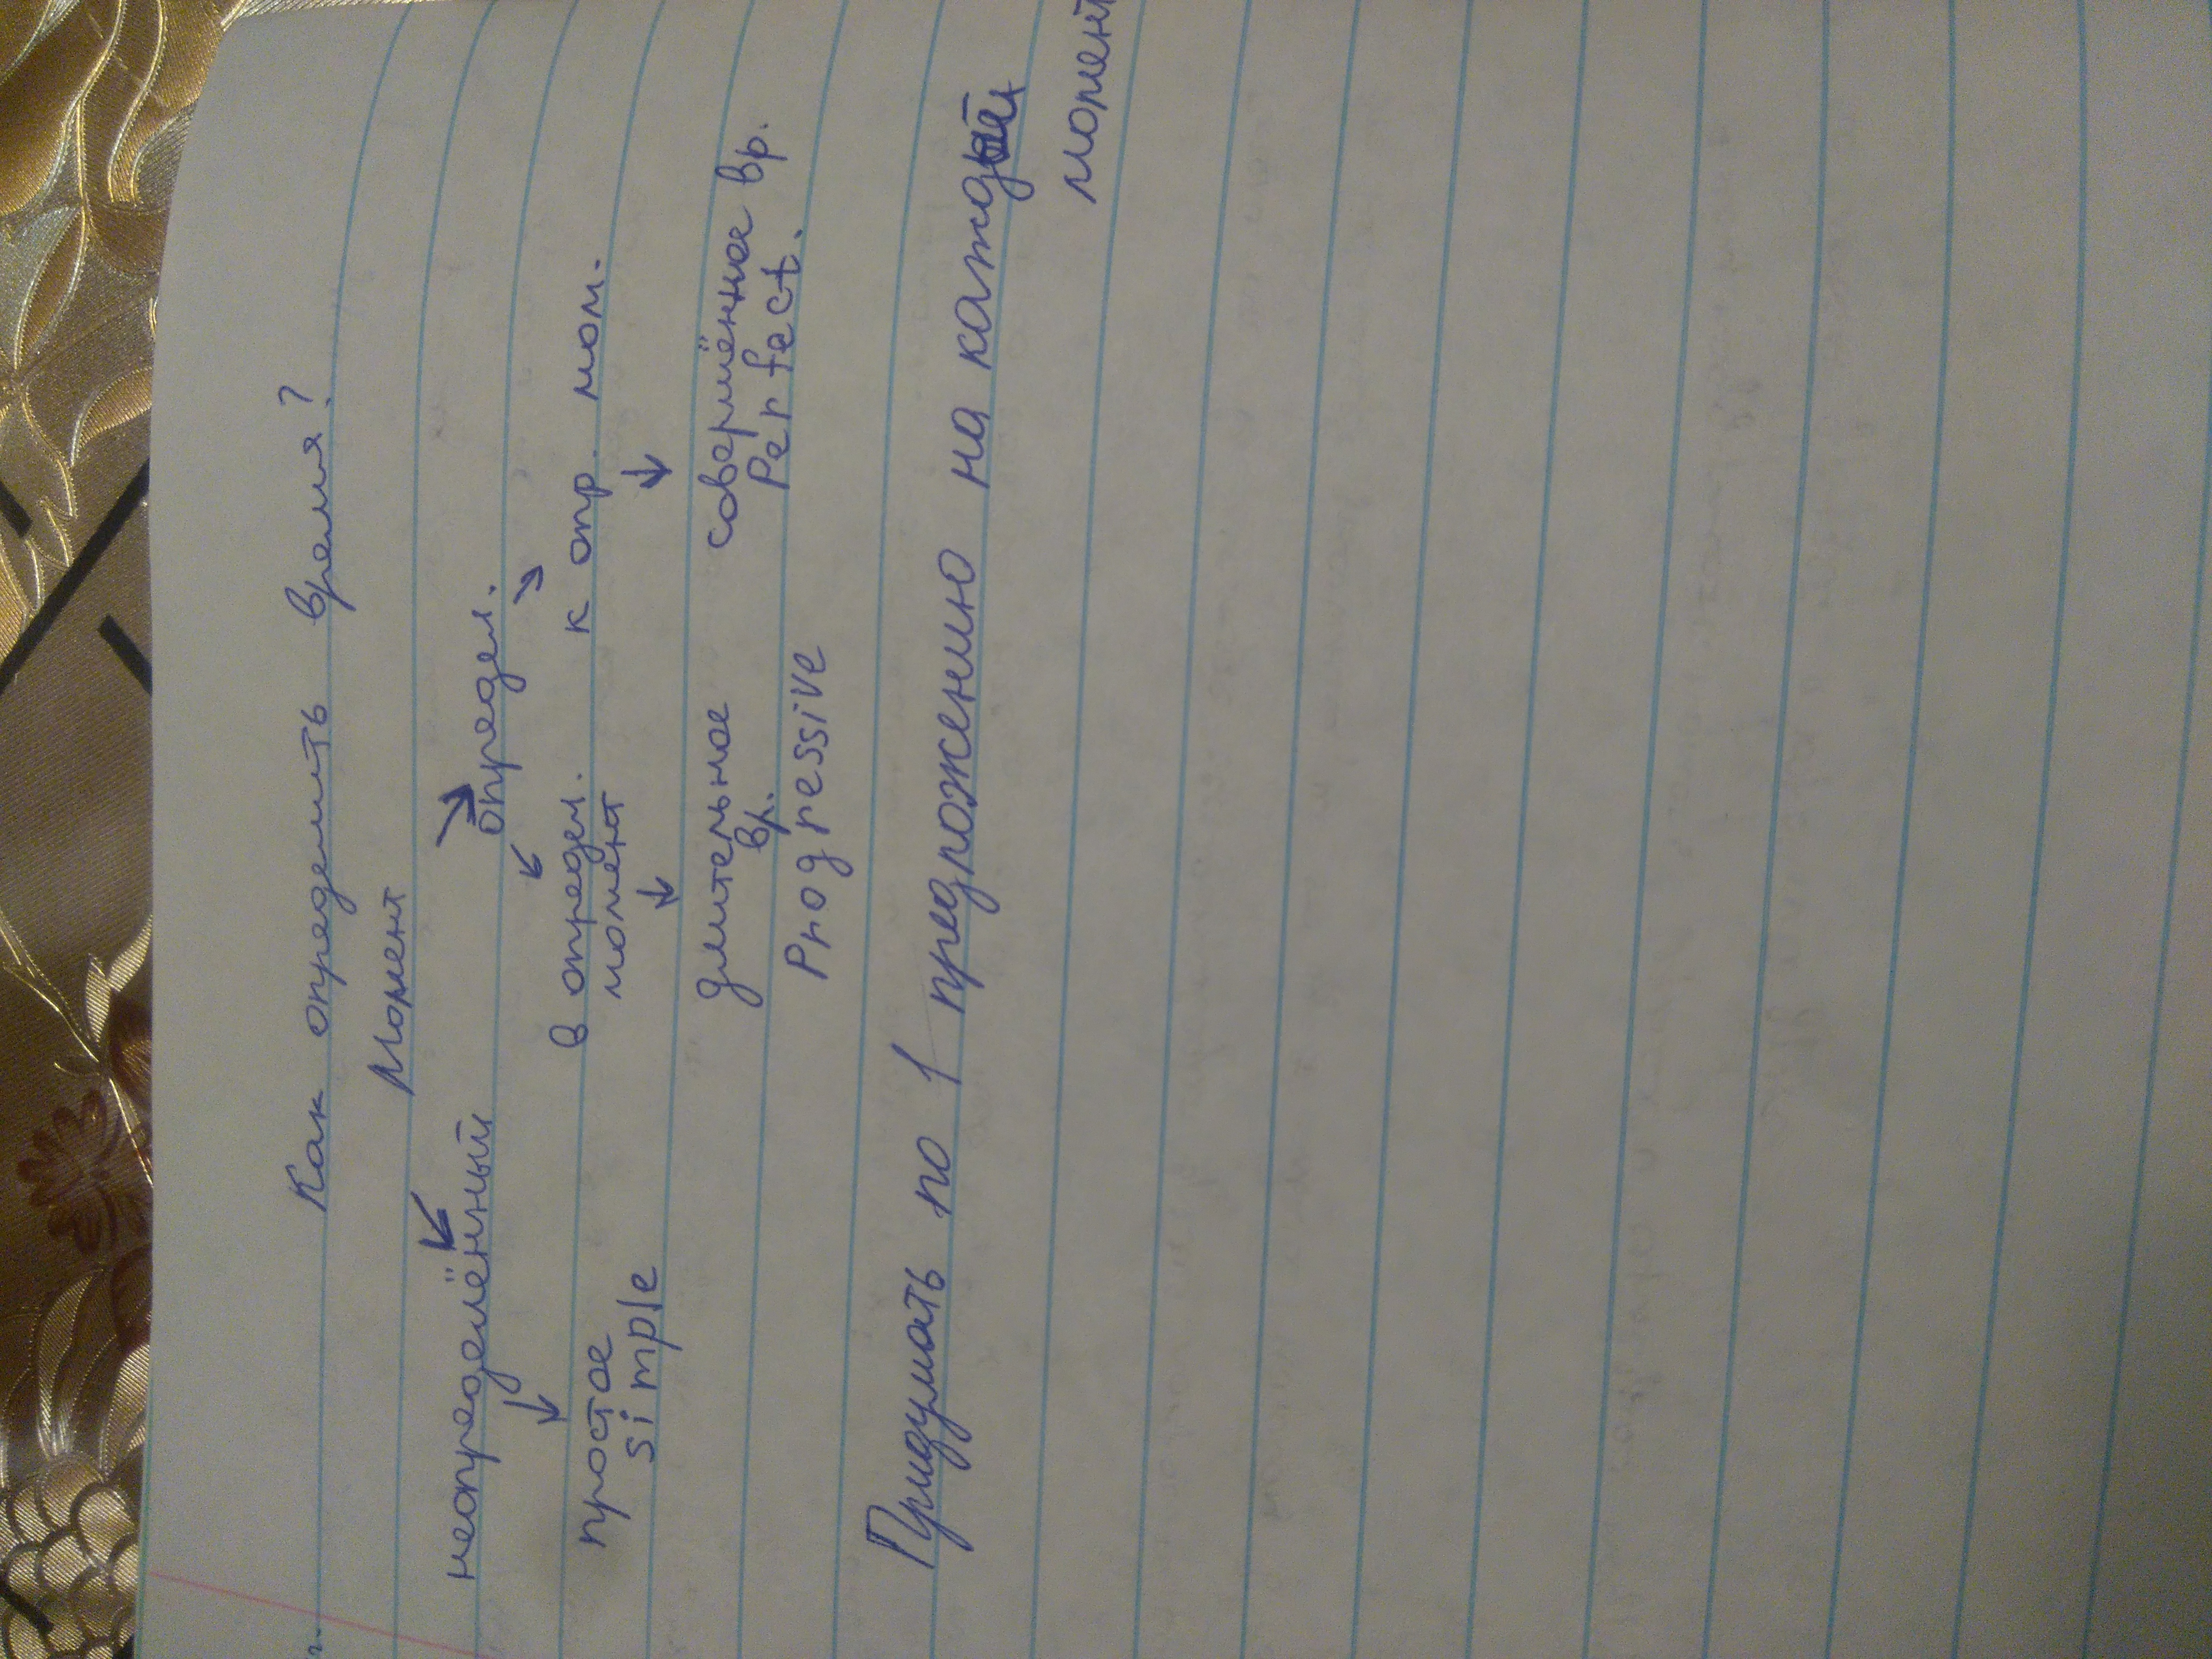 Как определить время?
Момент
неопределённый определ.
в определ. к опр. мом.
простое момент
simple
длительное совершённое вр.
вр. Perfect.
Progressive
Придумать по 1 предложению на каждый
момент